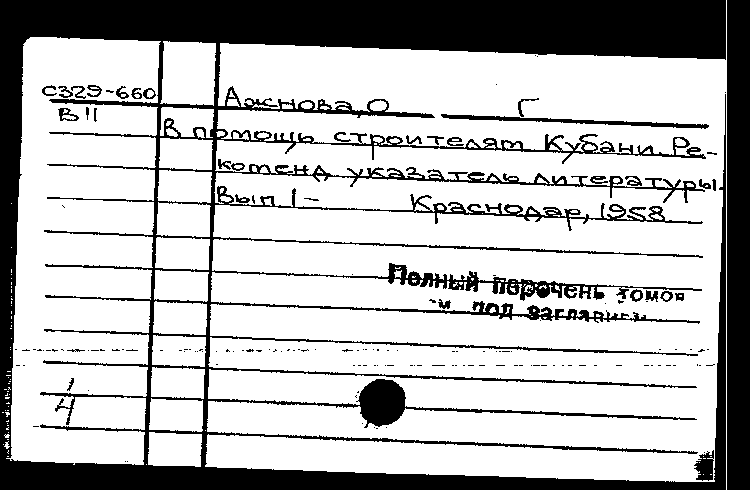 С329-660
В II
Ажнова, О Г
В помощь строителям Кубани. Ре-
коменд указатель литературы.
Вып 1 - Краснодар, 1958
Полный перечень томов
см. под заглавием
1
4